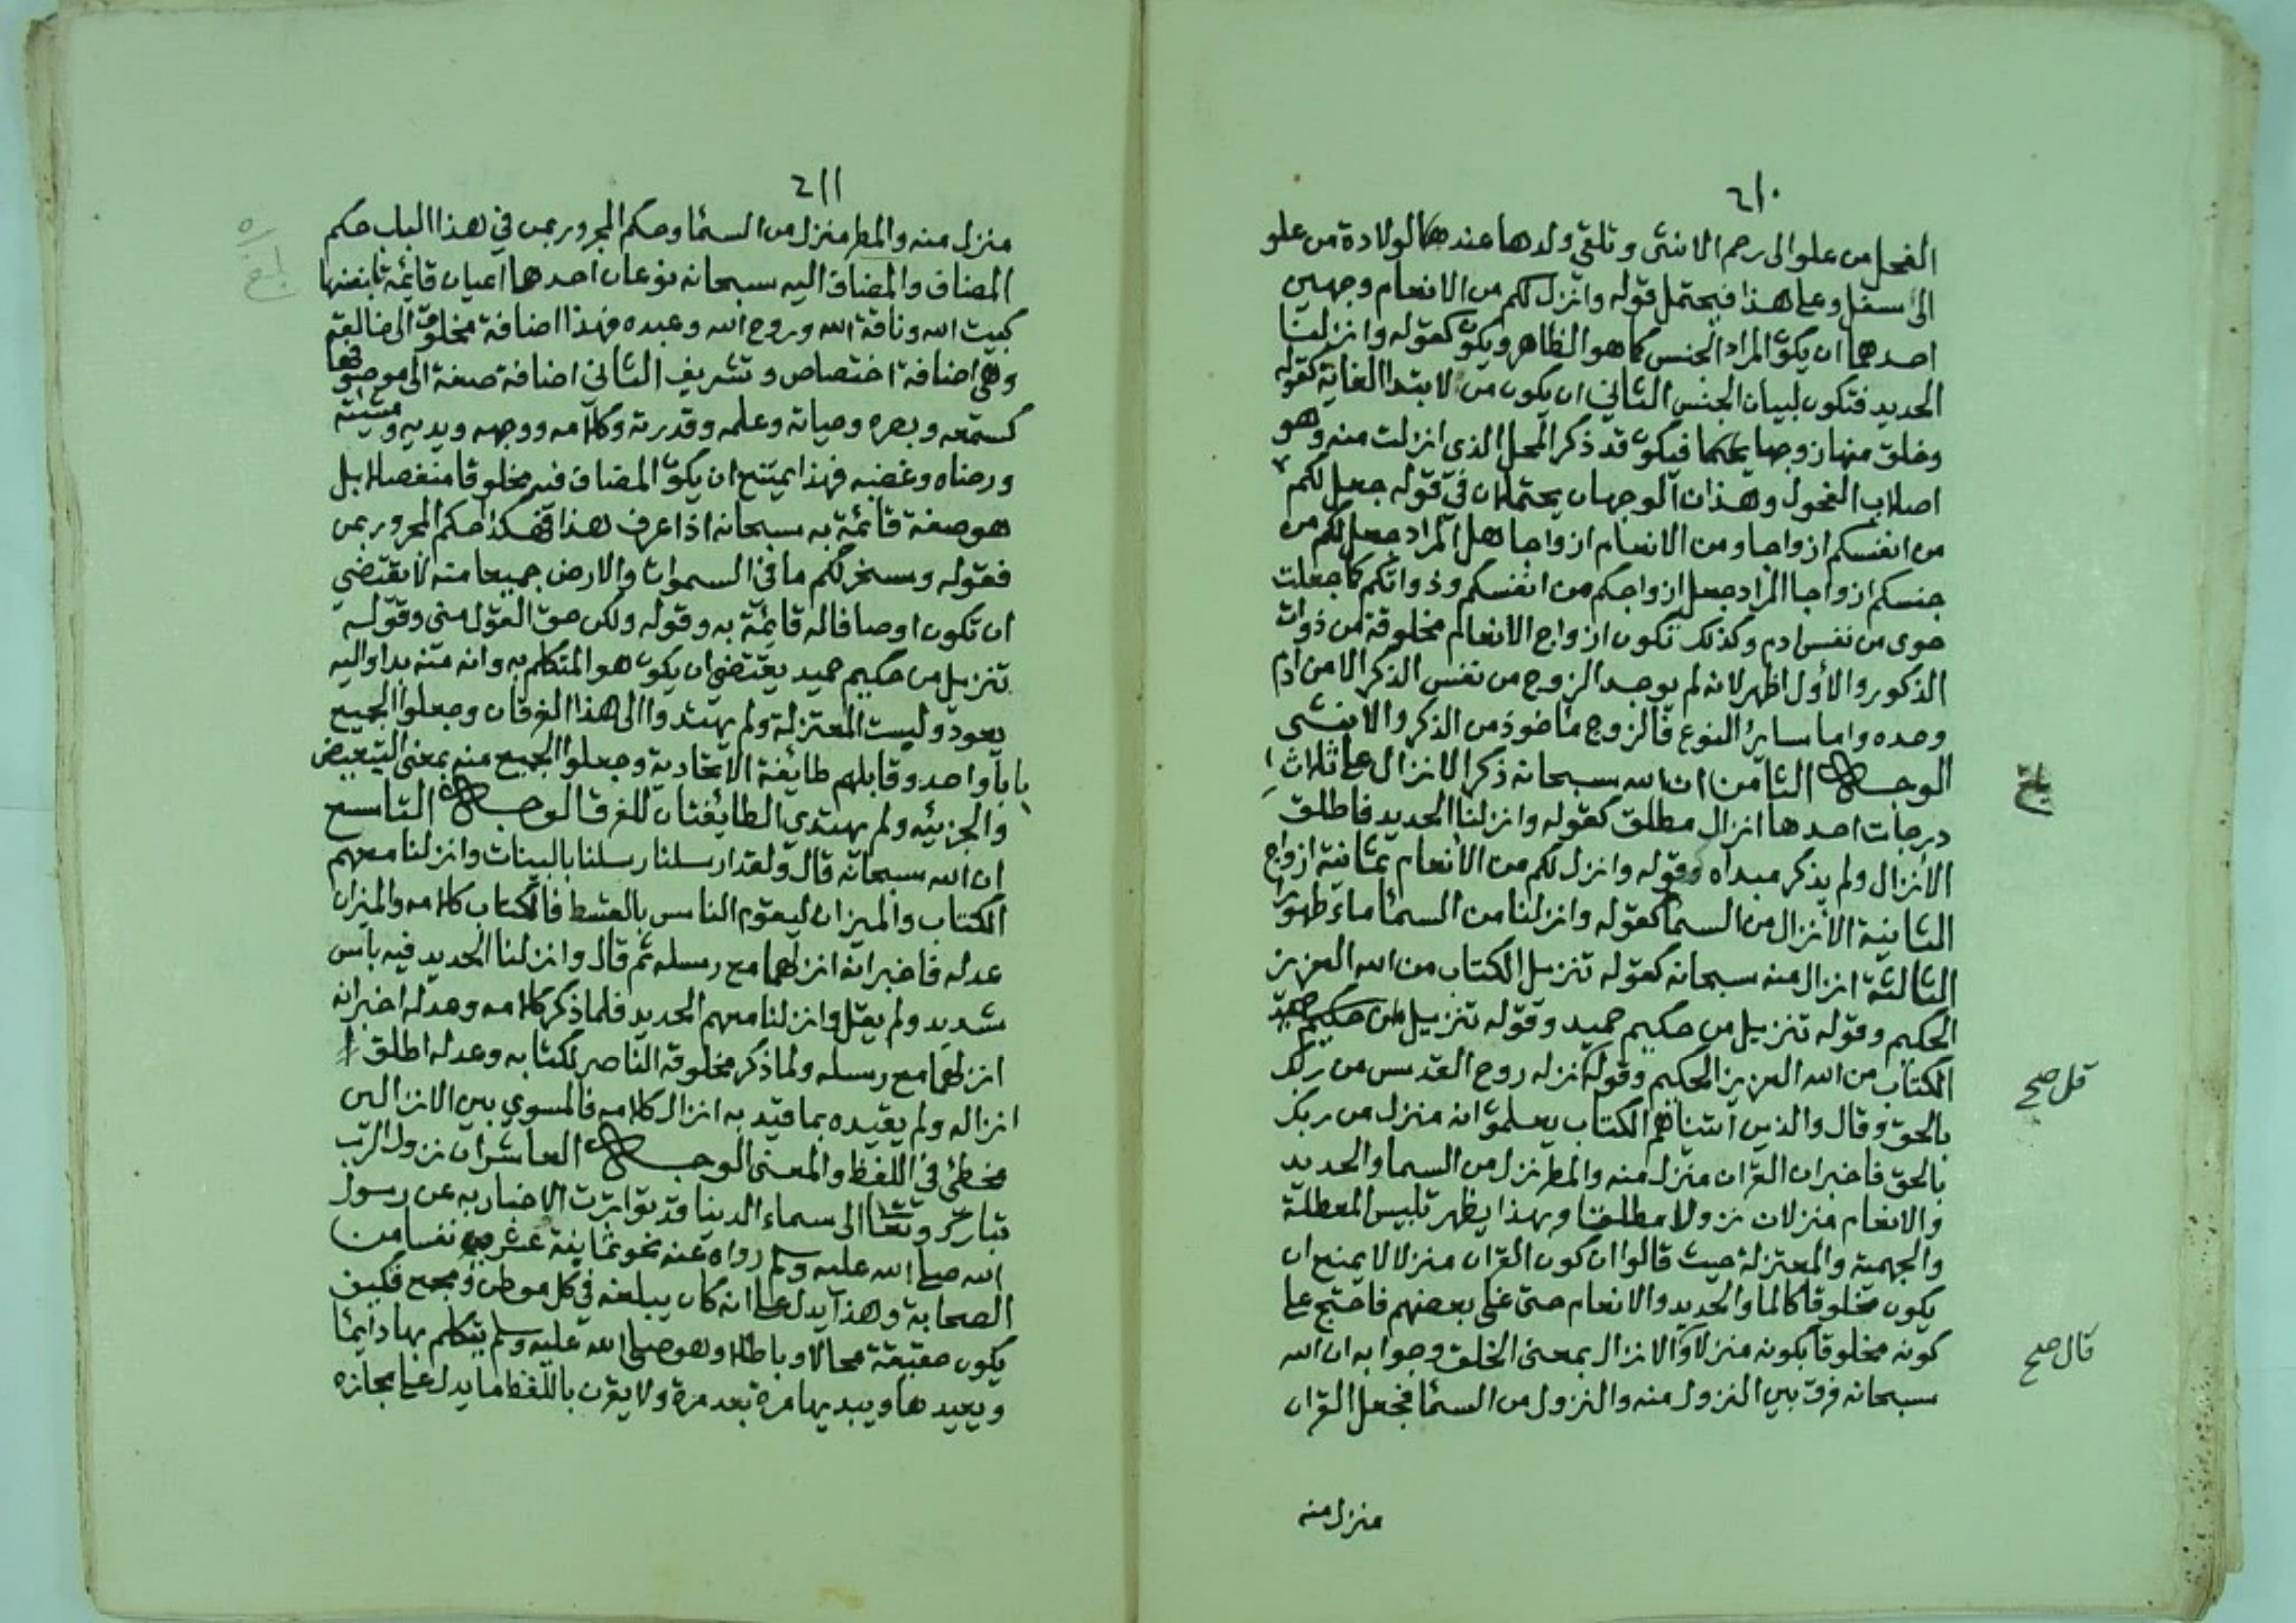 ٢١٠
الفحل من علو الى رحم الانثى وتلقى ولدها عند الولادة من علو
الى سفل وعلى هذا فيحتمل قوله وانزل لكم من الانعام وجهين
احدهما ان يكون المراد الجنس كما هو الظاهر ويكون كقوله وانزلنا
الحديد فتكون لبيان الجنس الثاني ان يكون من لابتدا الغاية كقوله
وخلق منها زوجها فيكون قد ذكر المحل الذي انزلت منه وهو
اصلاب الفحول وهذان الوجهان يحتملان في قوله جعل لكم
من انفسكم ازواجا ومن الانعام ازواجا هل المراد جعل لكم من
جنسكم ازواجا المراد جعل ازواجكم من انفسكم وذواتكم كما جعلت
حوى من نفس ادم وكذلك تكون ازواج الانعام مخلوقة من ذوات
الذكور والأول اظهر لانه لم يوجد الزوج من نفس الذكر الا من ادم
وحده واما ساير النوع فالزوج مأخوذ من الذكر والانثى
الوجه الثامن ان الله سبحانه ذكر الانزال على ثلاث
درجات احدها انزال مطلق كقوله وانزلنا الحديد فاطلق
بلغ
الانزال ولم يذكر مبداه وقوله وانزل لكم من الأنعام ثمانية ازواج
الثانية الأنزال من السما كقوله وانزلنا من السما ماء طهورا
الثالثة انزال منه سبحانه كقوله تنزيل الكتاب من الله العزيز
الحكيم وقوله تنزيل من حكيم حميد وقوله تنزيل من حكيم حميد
الكتاب من الله العزيز الحكيم وقوله انزله روح القدس من ربك
قل صح
بالحق وقال والذين آتيناهم الكتاب يعلمون انه منزل من ربك
بالحق فاخبر ان القران منزل منه والمطر نزل من السما والحديد
والانعام منزلان نزولا مطلقا وبهذا يظهر تلبيس المعطلة
والجهمية والمعتزلة حيث قالوا ان كون القران منزلا لا يمنع ان
يكون مخلوقا كالما والحديد والانعام حتى غلى بعضهم فاحتج على
كونه مخلوقا بكونه منزلا والانزال بمعنى الخلق وجوابه ان الله
قال صح
سبحانه فرق بين النزول منه والنزول من السما فجعل القران
منزل منه
٢١١
منزل منه والمطر منزل من السما وحكم المجرور بمن في هذا الباب حكم
المضاف والمضاف اليه سبحانه نوعان احدهما اعيان قائمة بانفسها
كبيت الله وناقة الله وروح الله وعبده فهذا اضافة مخلوق الى خالقه
وهي اضافة اختصاص وتشريف الثاني اضافة صفة الى موصوفها
كسمعه وبصره وحياته وعلمه وقدرته وكلامه ووجهه ويديه ومشيئته
ورضاه وغضبه فهذا يمتنع ان يكون المضاف فيه مخلوقا منفصلا بل
هو صفة قائمة به سبحانه اذا عرف هذا فهكذا حكم المجرور بمن
فقوله وسخر لكم ما في السموات والارض جميعا منه لا يقتضي
ان تكون اوصافا له قايمة به وقوله ولكن حق القول مني وقوله
تنزيل من حكيم حميد يقتضي ان يكون هو المتكلم به وانه منه بدا واليه
يعود ولبست المعتزلة ولم يهتدوا الى هذا الفرقان وجعلوا الجميع
بابا واحد وقابلهم طايفة الاتحادية وجعلوا الجميع منه بمعنى التبعيض
والجزئيه ولم يهتدي الطايفتان للفرق الوجه التاسع
ان الله سبحانه قال ولقد ارسلنا رسلنا بالبينات وانزلنا معهم
الكتاب والميزان ليقوم الناس بالقسط فالكتاب كلامه والميزان
عدله فاخبر انه انزلهما مع رسله ثم قال وانزلنا الحديد فيه باس
شديد ولم يقل وانزلنا معهم الحديد فلما ذكر كلامه وعدله اخبر انه
انزلهما مع رسله ولما ذكر مخلوقه الناصر لكتابه وعدله اطلق
انزاله ولم يقيده بما قيد به انزال كلامه فالمسوي بين الانزالين
مخطئ في اللفظ والمعنى الوجه العاشر ان نزول الرب
تبارك وتعالى الى سماء الدنيا قد تواترت الاخبار به عن رسول
الله صلى الله عليه وسلم رواه عنه نحو ثمانية عشرين نفسا من
الصحابة وهذا يدل على انه كان يبلغه في كل موطن ومجمع فكيف
يكون حقيقة محالا وباطلا وهو صلى الله عليه وسلم يتكلم بها دايما
ويعيدها ويبديها مرة بعد مرة ولا يقرن باللفظ ما يدل على مجازه